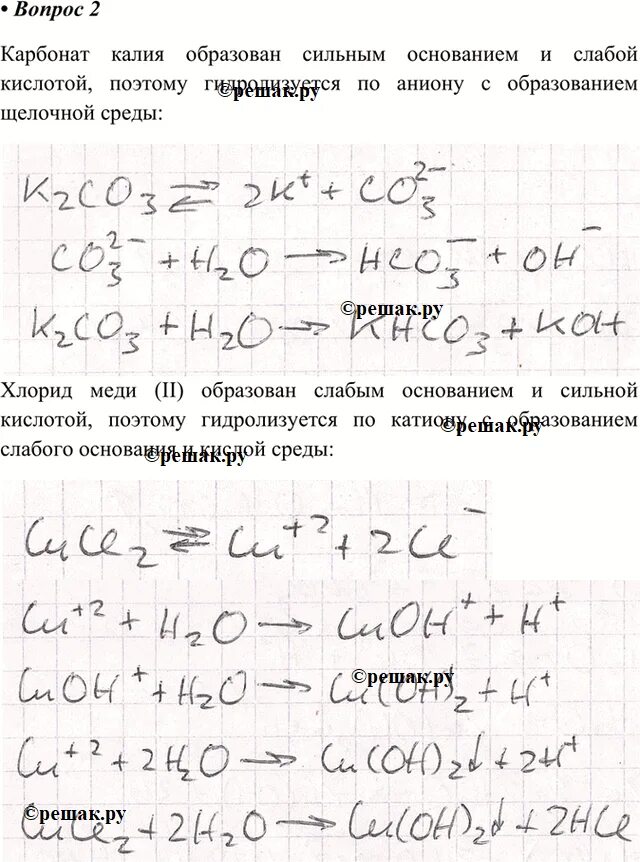 • Вопрос 2
Карбонат калия образован сильным основанием и слабой
кислотой, поэтому гидролизуется по аниону с образованием
©решак.ру
щелочной среды:
K₂CO₃ ⇄ 2K⁺ + CO₃²⁻
CO₃²⁻ + H₂O → HCO₃⁻ + OH⁻
©решак.ру
K₂CO₃ + H₂O → KHCO₃ + KOH
Хлорид меди (II) образован слабым основанием и сильной
кислотой, поэтому гидролизуется по катиону с образованием
©решак.ру
слабого основания и кислой среды:
©решак.ру
CuCl₂ ⇄ Cu⁺² + 2Cl⁻
Cu⁺² + H₂O → CuOH⁺ + H⁺
©решак.ру
CuOH⁺ + H₂O → Cu(OH)₂ + H⁺
Cu⁺² + 2H₂O → Cu(OH)₂↓ + 2H⁺
©решак.ру
CuCl₂ + 2H₂O → Cu(OH)₂↓ + 2HCl